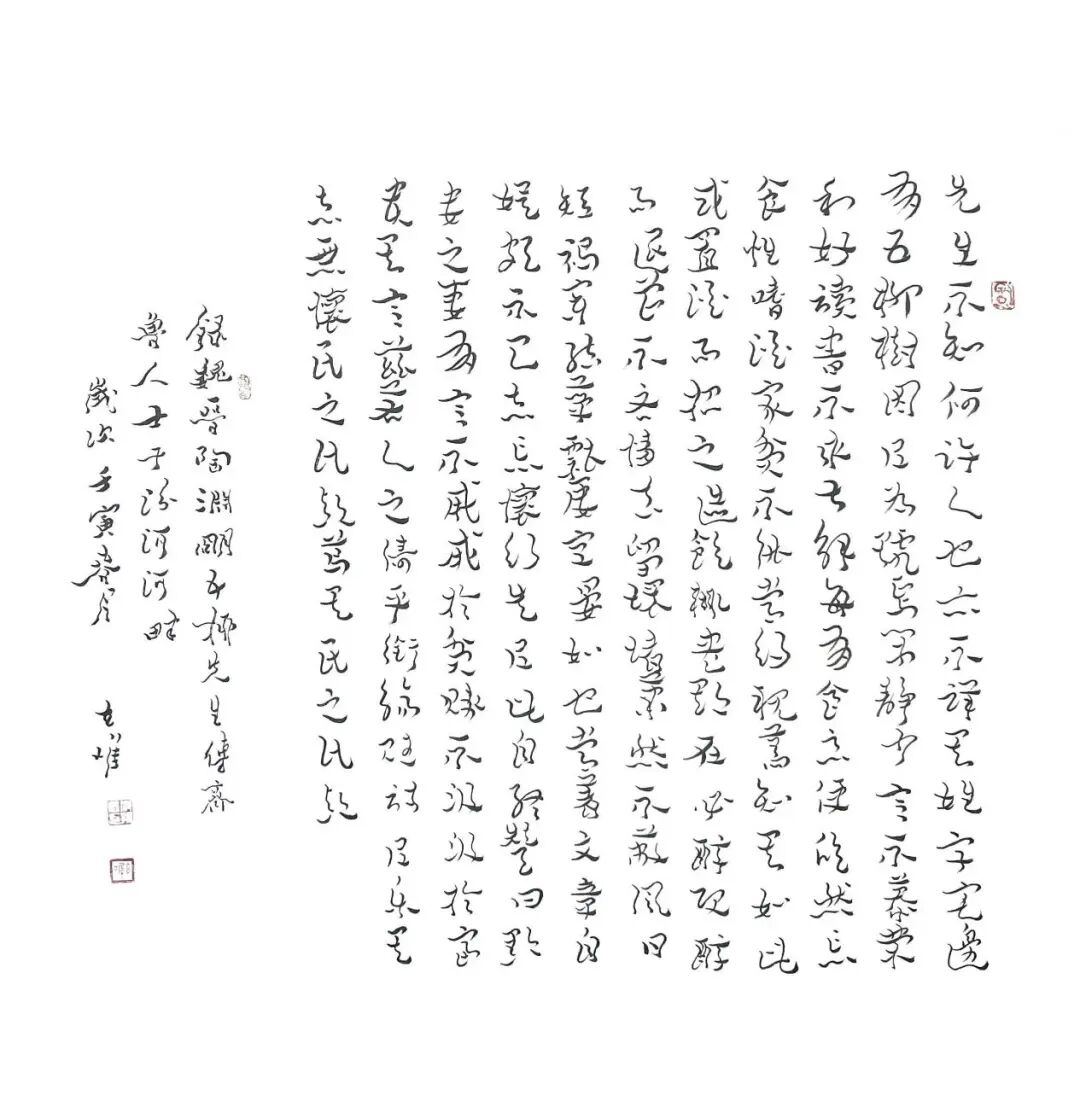 先生不知何許人也亦不詳其姓字宅邊
有五柳樹因以為號焉閑靜少言不慕榮
利好讀書不求甚解每有會意便欣然忘
食性嗜酒家貧不能常得親舊知其如此
或置酒而招之造飲輒盡期在必醉既醉
而退曾不吝情去留環堵蕭然不蔽風日
短褐穿結簞瓢屢空晏如也常著文章自
娛頗示己志忘懷得失以此自終贊曰黔
婁之妻有言不戚戚於貧賤不汲汲於富
貴其言茲若人之儔乎銜觴賦詩以樂其
志無懷氏之民歟葛天氏之民歟
錄魏晉陶淵明五柳先生傳齊
魯人士于汾河河畔
歲次壬寅春月